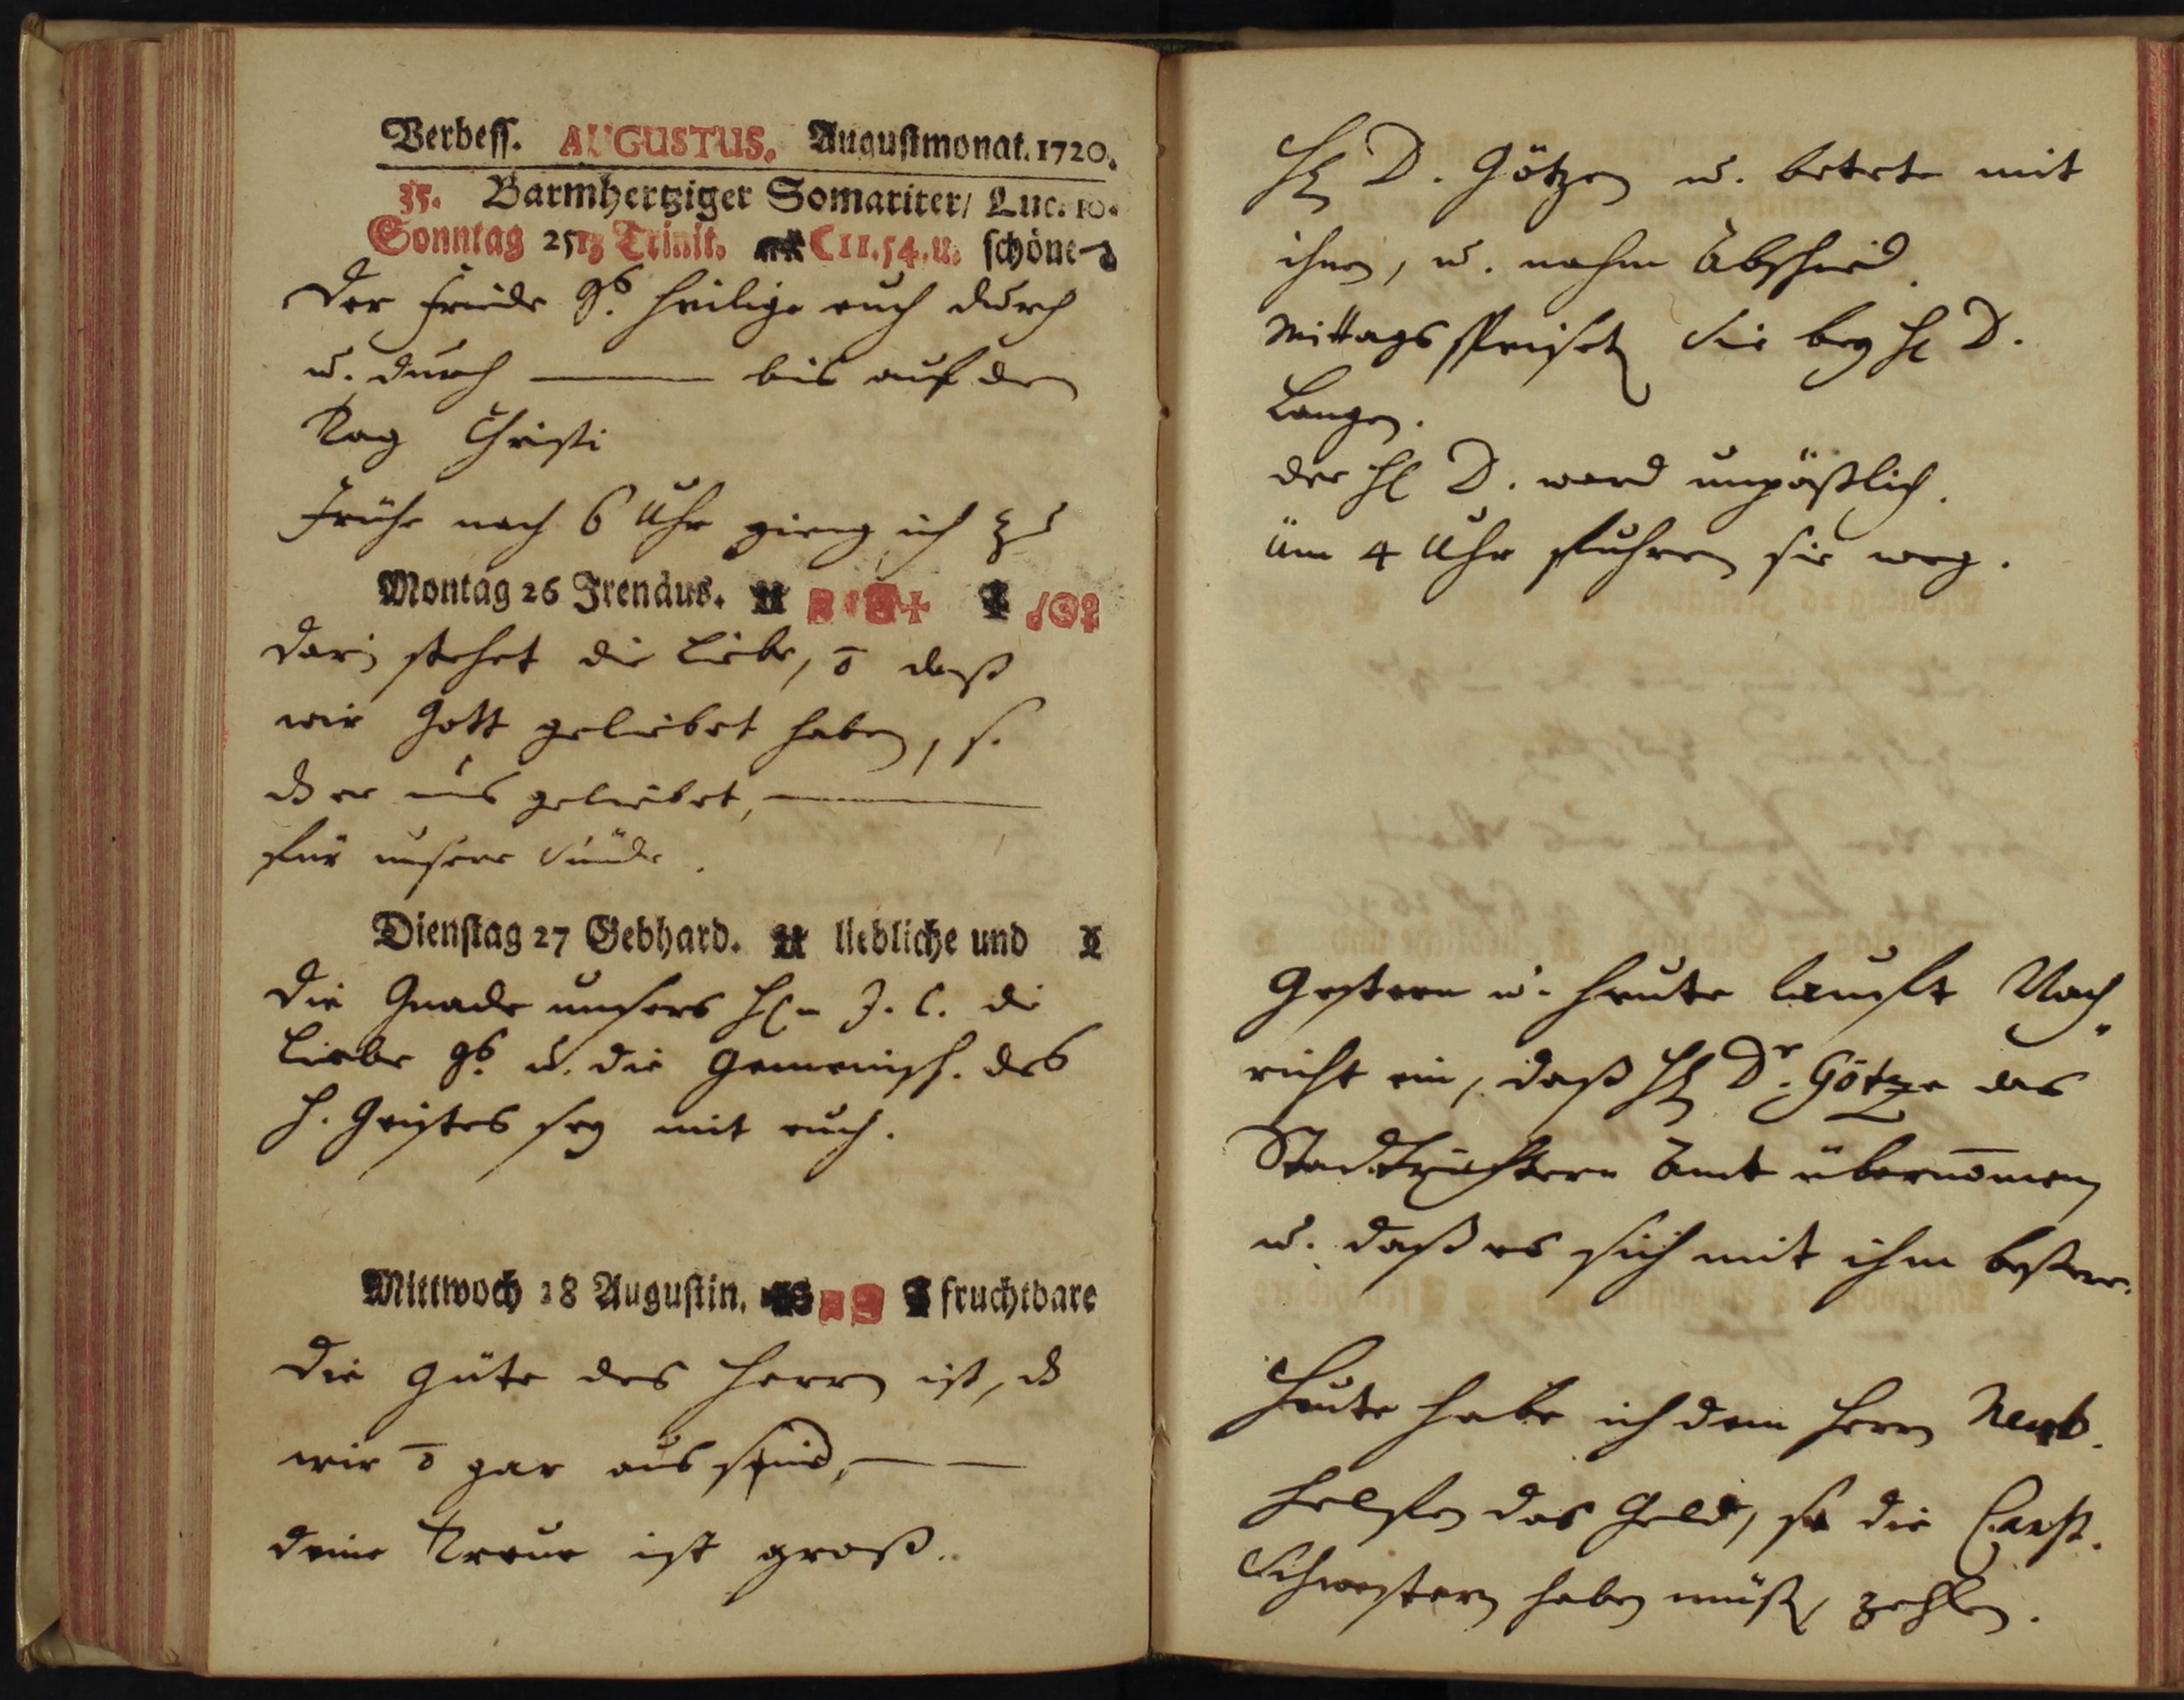 Verbess. AUGUSTUS. Augustmonat. 1720.
35. Barmhertziger Somariter/ Luc. 10.
Sonntag 25 13 Trinit. C 11.54.u. schöne
Der Friede Gs. heilige euch durch
u. durch ——— bis auf den
Tag Christi
Frühe nach 6 Uhr gieng ich zu
Montag 26 Irenäus.
Darin stehet die Liebe, daß
wir Gott geliebet haben, s.
er uns geliebet, ———
für unsere Sünde.
Dienstag 27 Gebhard. liebliche und
Die Gnade unsers Hn J. C. die
Liebe gs. u. die Gemeinsch. des
H. Geistes sey mit euch.
Mittwoch 28 Augustin. fruchtbare
Die Güte des Herrn ist,
wir gar aus sind, — —
deine Treue ist groß.
H D. Götzen u. betete mit
ihnen, u. nahm Abschied.
Mittags speiset Sie bey H D.
Langen.
der H D. ward unpäßlich.
Üm 4 Uhr fuhren sie weg.
Gestern u. heute laufft Nach„
richt ein, daß H Dr. Götze das
Stadtrichtern Amt übernomen
u. daß es sich mit ihm beßere.
Heute habe ich dem Herrn Neub.
helfen das Geld, so die
Schwestern haben müß, zehlen.